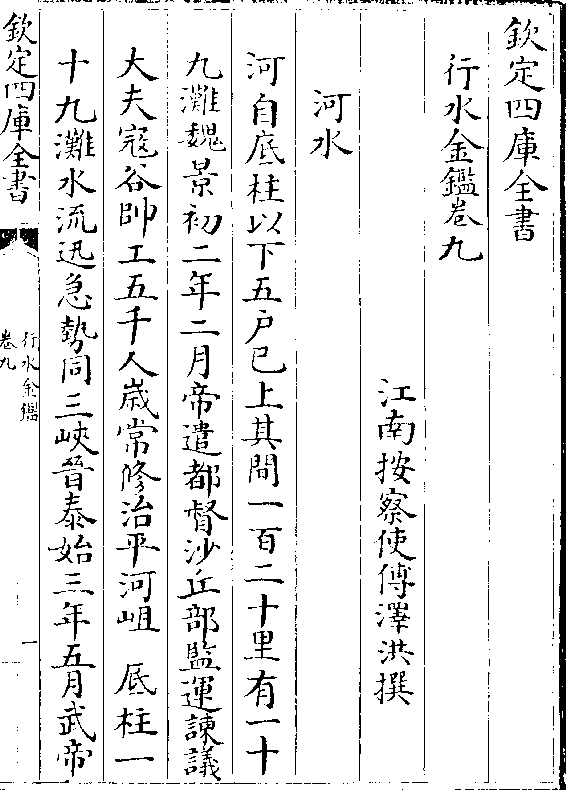 欽定四庫全書
行水金鑑卷九
江南按察使傅澤洪撰
河水
河自底柱以下五户已上其間一百二十里有一十
九灘魏景初二年二月帝遣都督沙丘部監運諫議
大夫寇谷帥工五千人歲常修治平河岨 底柱一
十九灘水流迅急勢同三峽晉泰始三年五月武帝
欽定四庫全書
行水金鑑
卷九
一